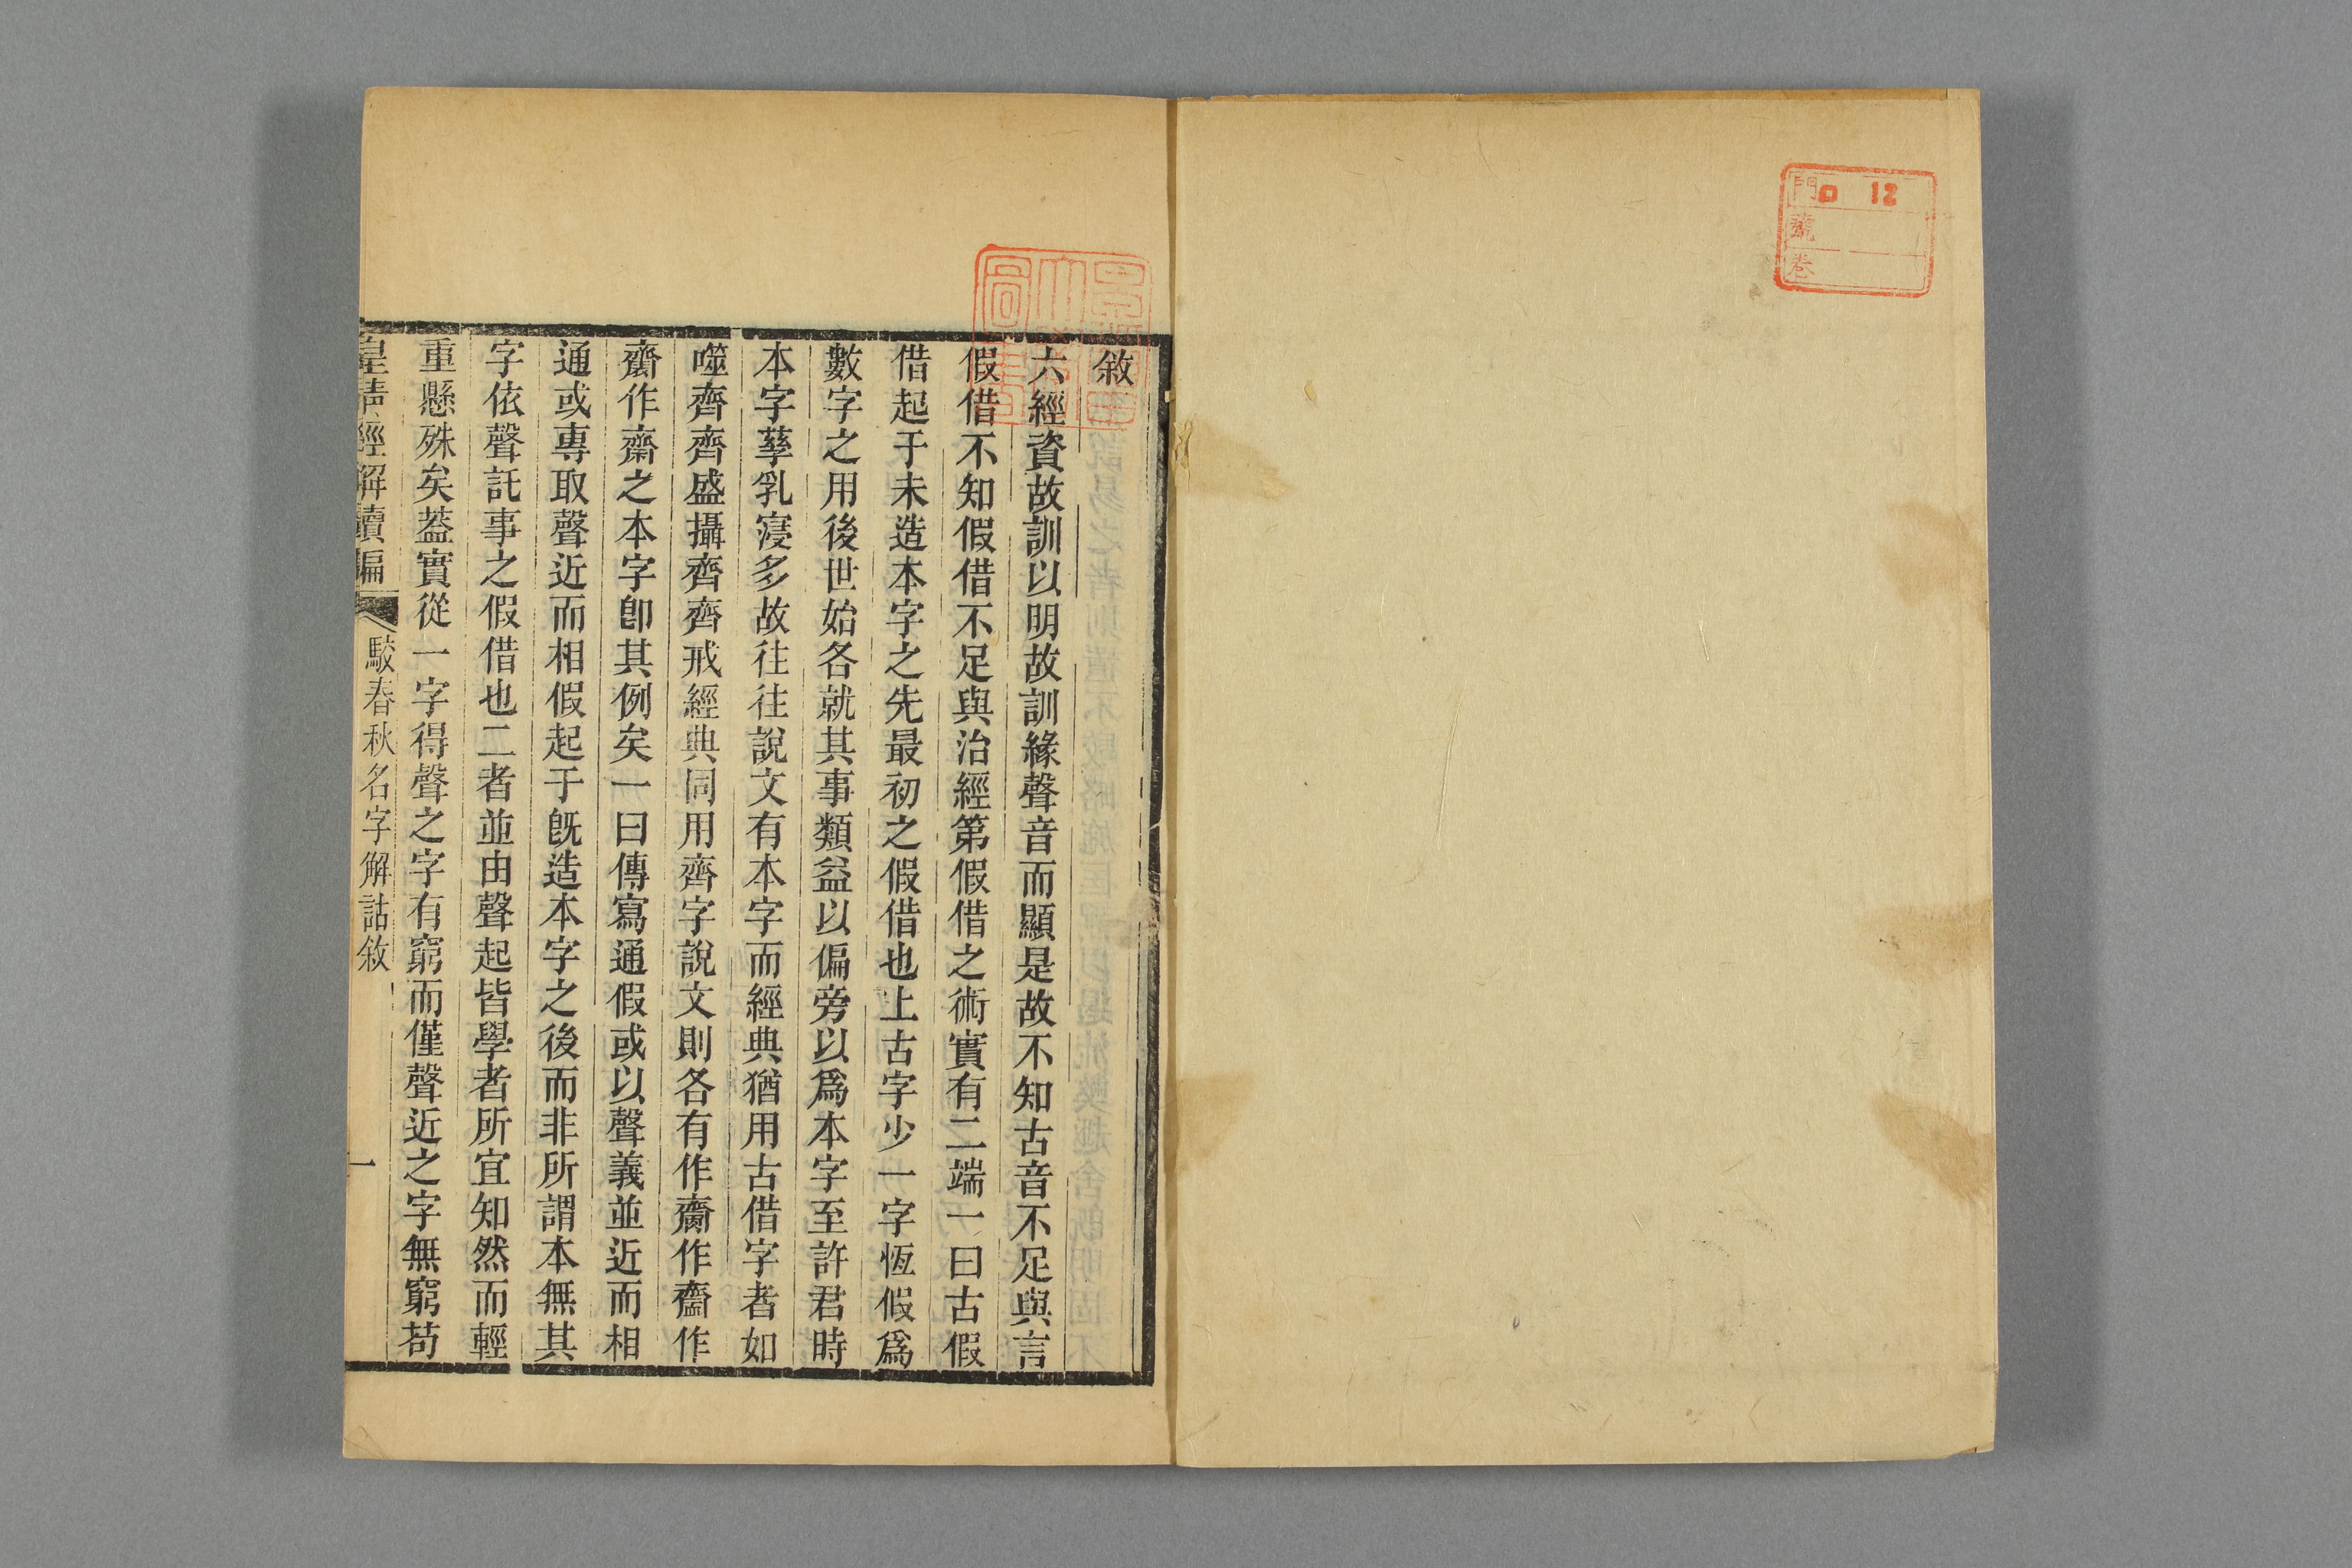 門 ロ 12
號
卷
敘
六經資故訓以明故訓緣聲音而顯是故不知古音不足與言
假借不知假借不足與治經第假借之術實有二端一曰古假
借起于未造本字之先最初之假借也上古字少一字恆假爲
數字之用後世始各就其事類益以偏旁以爲本字至許君時
本字孳乳寖多故往往說文有本字而經典猶用古借字者如
噬齊齊盛攝齊齊戒經典同用齊字說文則各有作齌作齍作
齋之本字卽其例矣一曰傳寫通假或以聲義並近而相
通或專取聲近而相假起于旣造本字之後而非所謂本無其
字依聲託事之假借也二者並由聲起皆學者所宜知然而輕
重懸殊矣葢實從一字得聲之字有窮而僅聲近之字無窮苟
皇清經解續編 駁春秋名字解詁敘 一